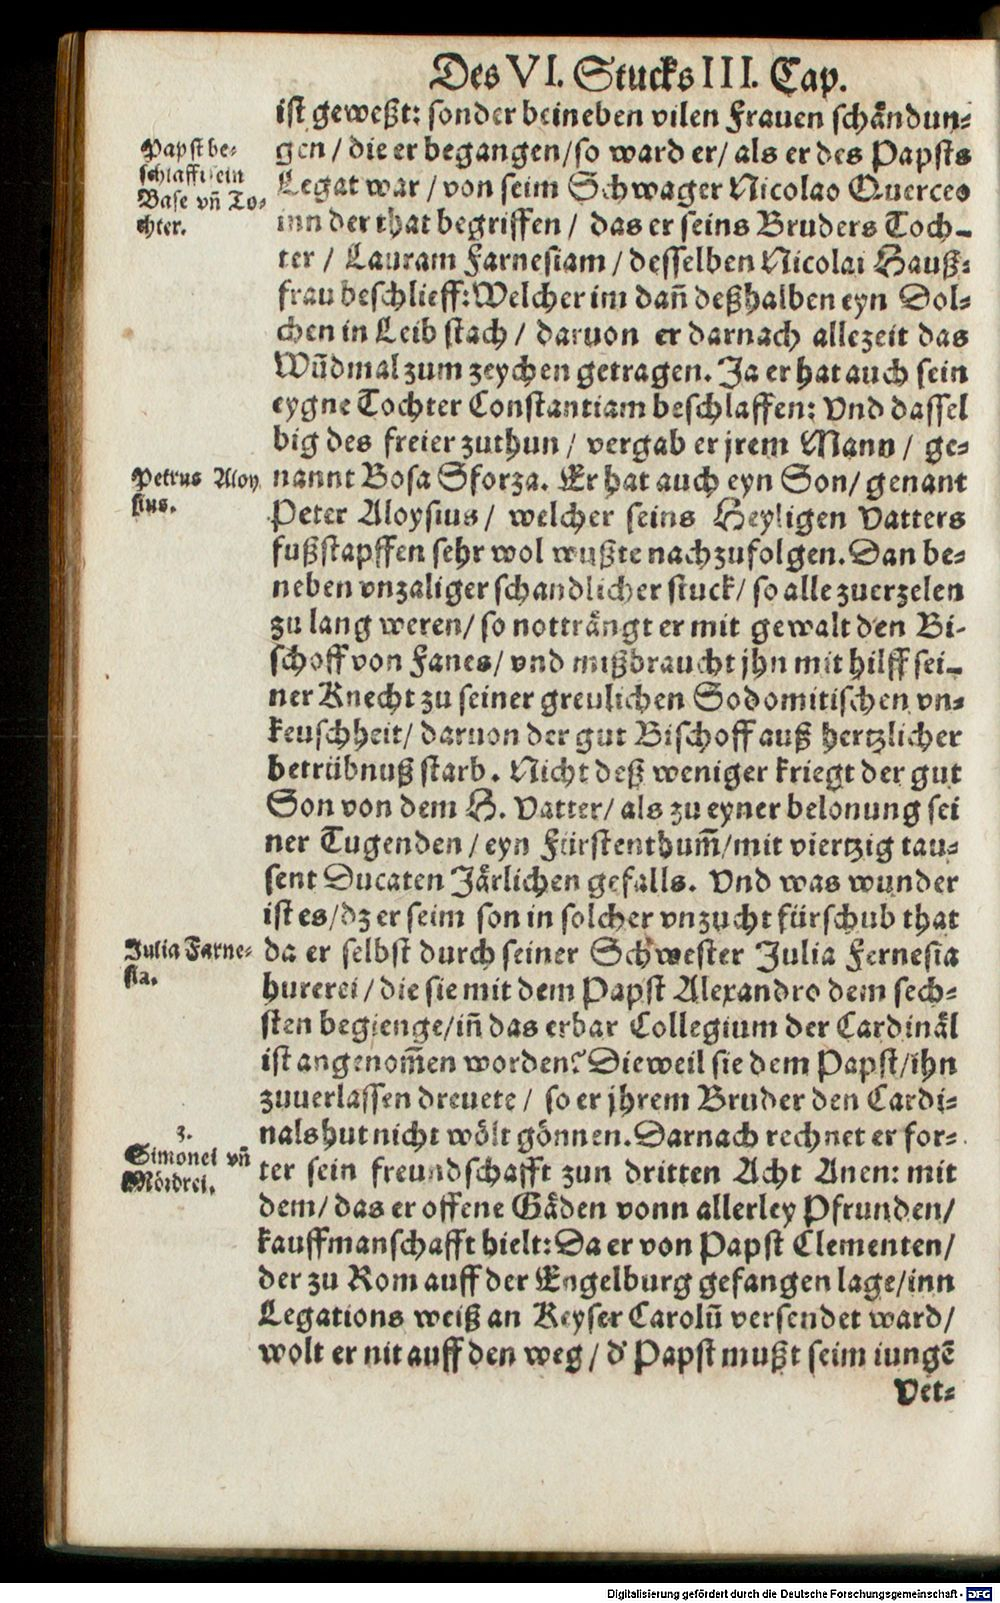 Des VI. Stucks III. Cap.
ist geweßt: sonder beineben vilen Frauen schändun-
gen / die er begangen / so ward er / als er des Papsts
Legat war / von seim Schwager Nicolao Querceo
inn der that begriffen / das er seins Bruders Toch-
ter / Lauram Farnesiam / desselben Nicolai Hauß-
frau beschlieff: Welcher im dañ deßhalben eyn Dol-
chen in Leib stach / daruon er darnach allezeit das
Wũdmal zum zeychen getragen. Ja er hat auch sein
eygne Tochter Constantiam beschlaffen: Vnd dassel
big des freier zuthun / vergab er jrem Mann / ge-
nannt Bosa Sforza. Er hat auch eyn Son / genant
Peter Aloysius / welcher seins Heyligen Vatters
fußstapffen sehr wol wußte nachzufolgen. Dan be-
neben vnzaliger schandlicher stuck / so alle zuerzelen
zu lang weren / so notträngt er mit gewalt den Bi-
schoff von Fanes / vnd mißbraucht jhn mit hilff sei-
ner Knecht zu seiner greulichen Sodomitischen vn-
keuschheit / daruon der gut Bischoff auß hertzlicher
betrübnuß starb. Nicht deß weniger kriegt der gut
Son von dem H. Vatter / als zu eyner belonung sei
ner Tugenden / eyn Fürstenthum̃ / mit viertzig tau-
sent Ducaten Järlichen gefalls. Vnd was wunder
ist es / dz er seim son in solcher vnzucht fürschub that
da er selbst durch seiner Schwester Julia Fernesia
hurerei / die sie mit dem Papst Alexandro dem sech-
sten begienge / iñ das erbar Collegium der Cardinäl
ist angenom̃en worden? Dieweil sie dem Papst / ihn
zuuerlassen dreuete / so er jhrem Bruder den Cardi-
nalshut nicht wölt gönnen. Darnach rechnet er for-
ter sein freundschafft zun dritten Acht Anen: mit
dem / das er offene Gäden vonn allerley Pfrunden /
kauffmanschafft hielt: Da er von Papst Clementen /
der zu Rom auff der Engelburg gefangen lage / inn
Legations weiß an Keyser Carolũ versendet ward /
wolt er nit auff den weg / d' Papst mußt seim iungẽ
Vet-
Papst be-
schlafft sein
Base vñ To-
chter.
Petrus Aloy
sius.
Julia Farne-
sia.
3.
Simonei vñ
Mördrei.
Digitalisierung gefördert durch die Deutsche Forschungsgemeinschaft - DFG